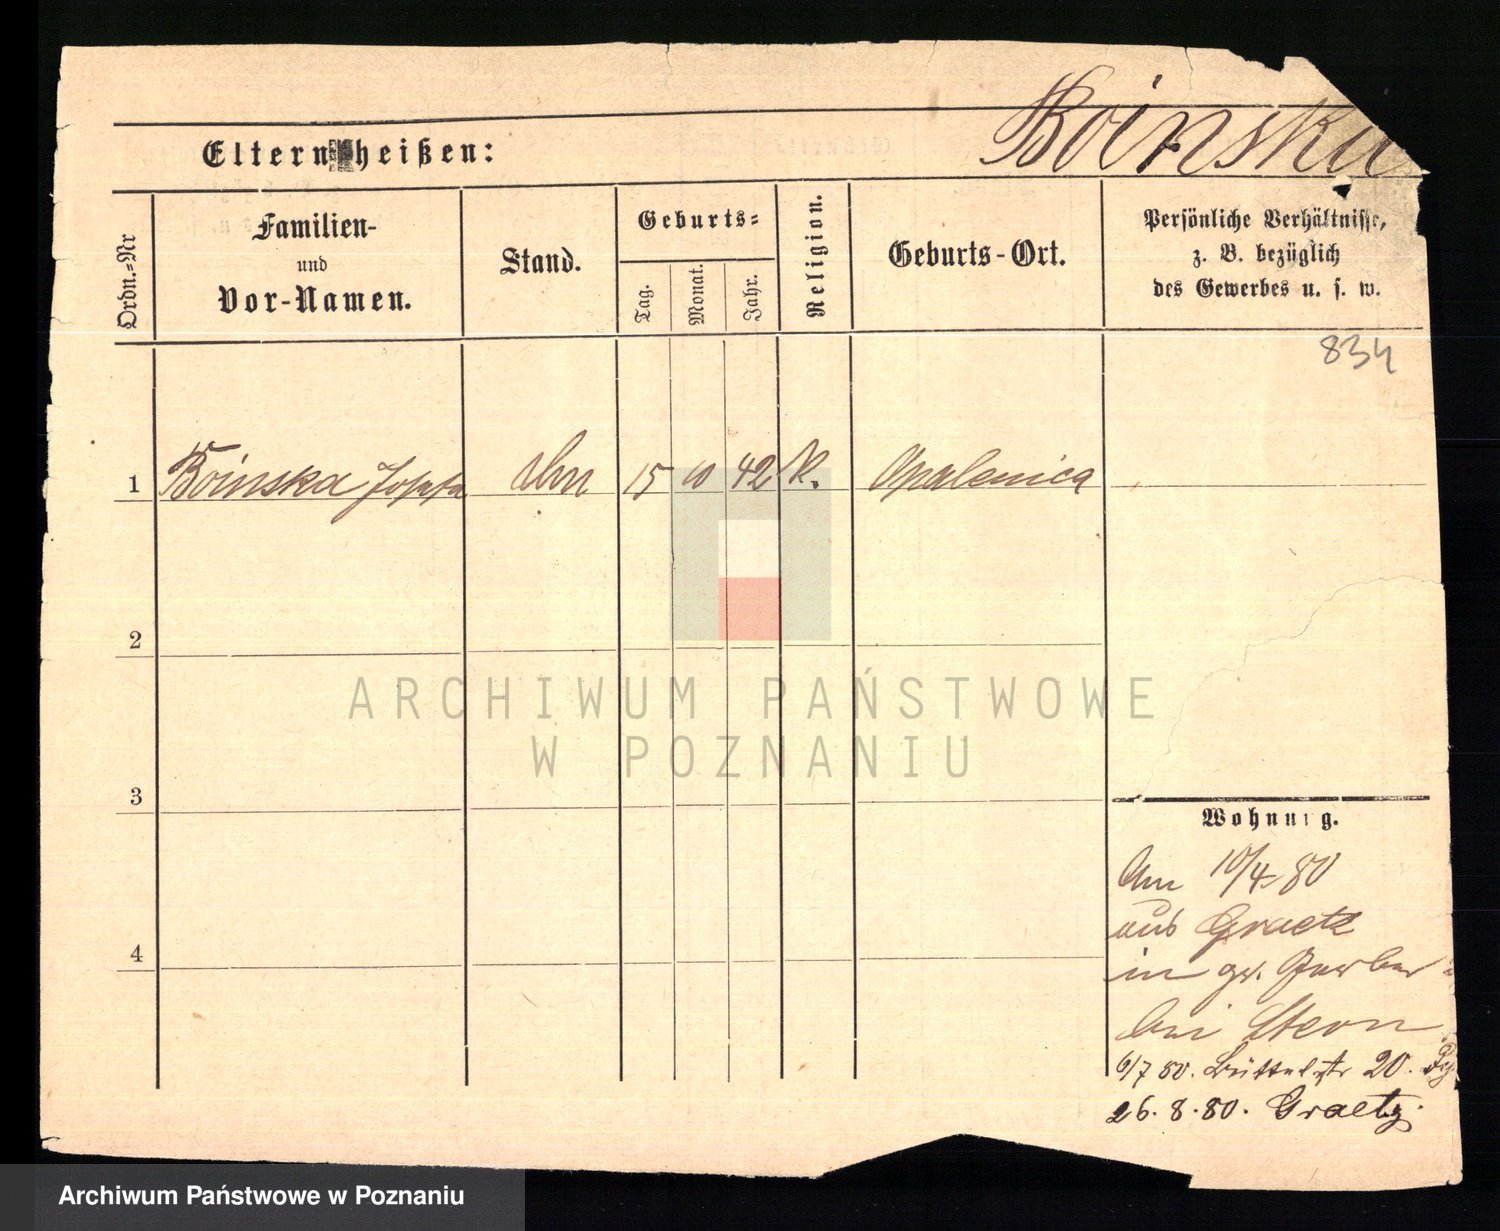 Boinska
Eltern heißen:
Ordn.=Nr
Familien-
und
Vor-Namen.
Stand.
Geburts=
Tag.
Monat.
Jahr.
Religion.
Geburts-Ort.
Persönliche Verhältnisse,
z. B. bezüglich
des Gewerbes u. s. w.
834
1 Boinska Josefa 15 10 42 k. Opalenica
2
3
4
ARCHIWUM PAŃSTWOWE
W POZNANIU
Wohnung.
Am 10/4 80
aus Graetz
in gr. Gerber
bei Stern
6/7 80. Büttelstr 20.
26. 8. 80. Graetz.
Archiwum Państwowe w Poznaniu